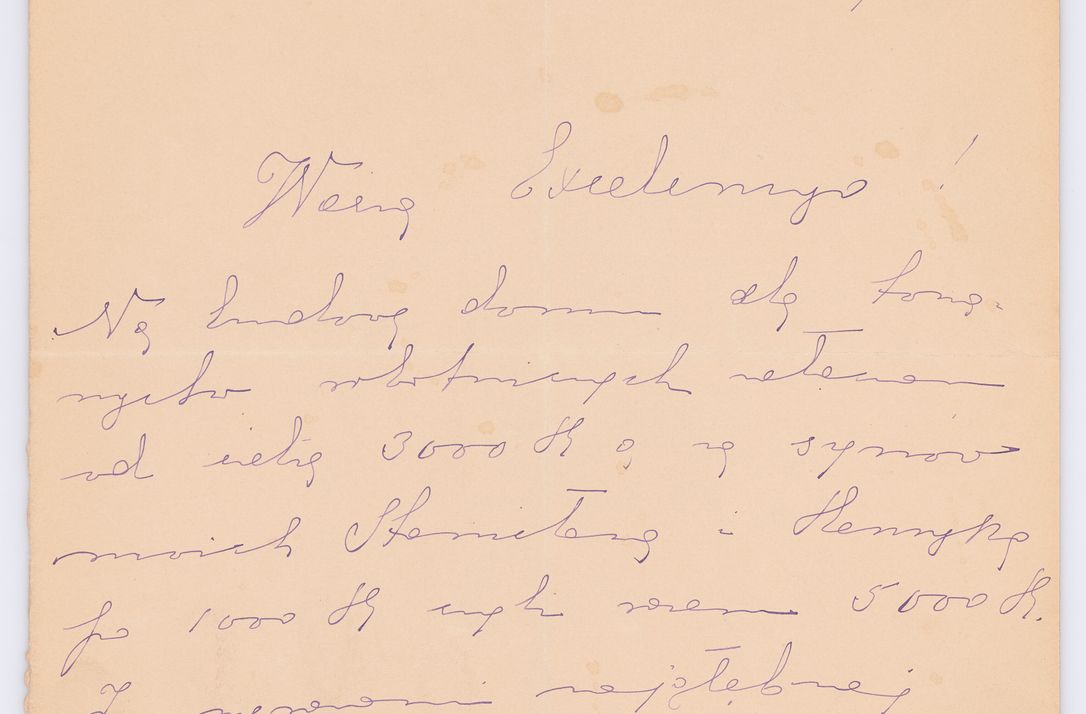 Wasza Excelencyo!
Na budowę domu dla towa-
rzystw robotniczych składam
od siebie 3000 K a za synów
moich Stanisława i Henryka
po 1000 K czyli razem 5000 K.
Z wyrazami najgłębszej